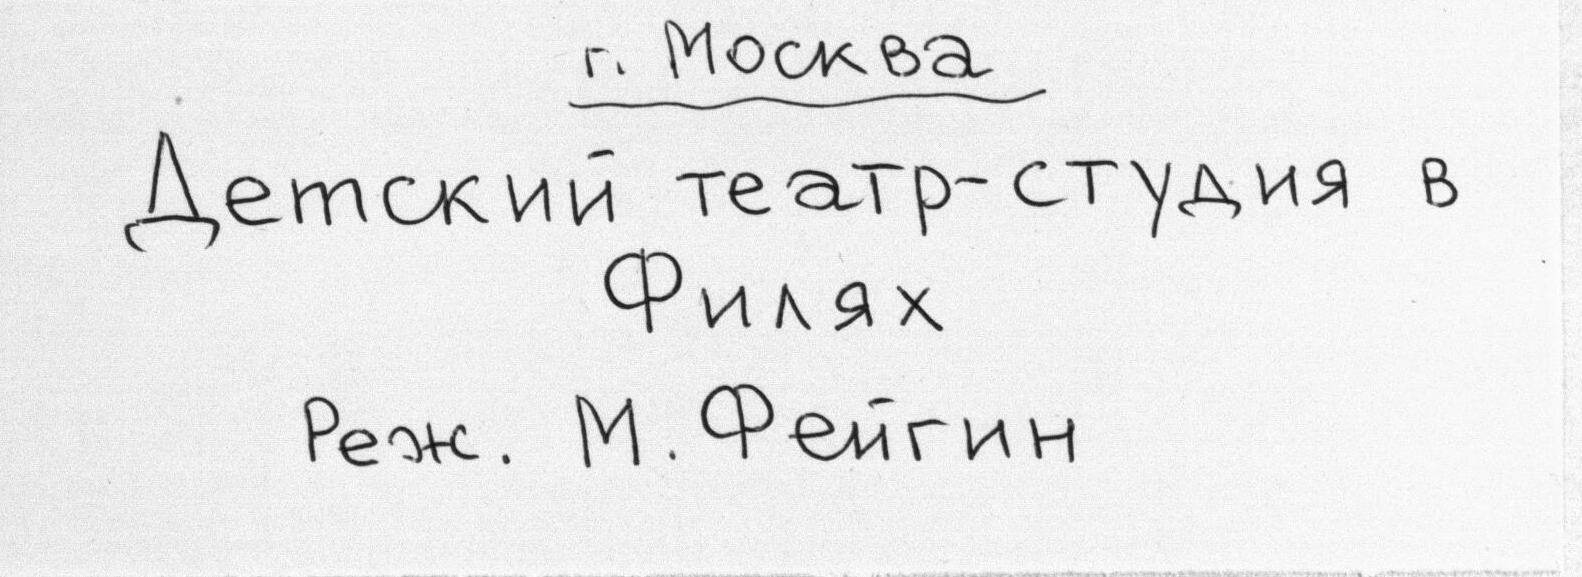 г. Москва
Детский театр-студия в
Филях
Реж. М. Фейгин